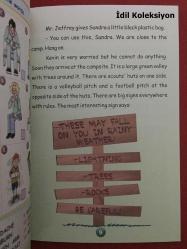 İdil Koleksiyon
Mr. Jeffrey gives Sandra a little black plastic bag.
- You can use this, Sandra. We are close to the
camp. Hang on.
Kevin is very worried but he cannot do anything.
Soon they arrive at the campsite. It is a large green valley
with trees around it. There are scouts' huts on one side.
There is a volleyball pitch and a football pitch at the
opposite side of the huts. There are big signs everywhere
with rules. The most interesting sign says:
-THESE MAY FALL
ON YOU IN RAINY
WEATHER:
-LIGHTNING
-TREES
-ROCKS
BE CAREFUL!